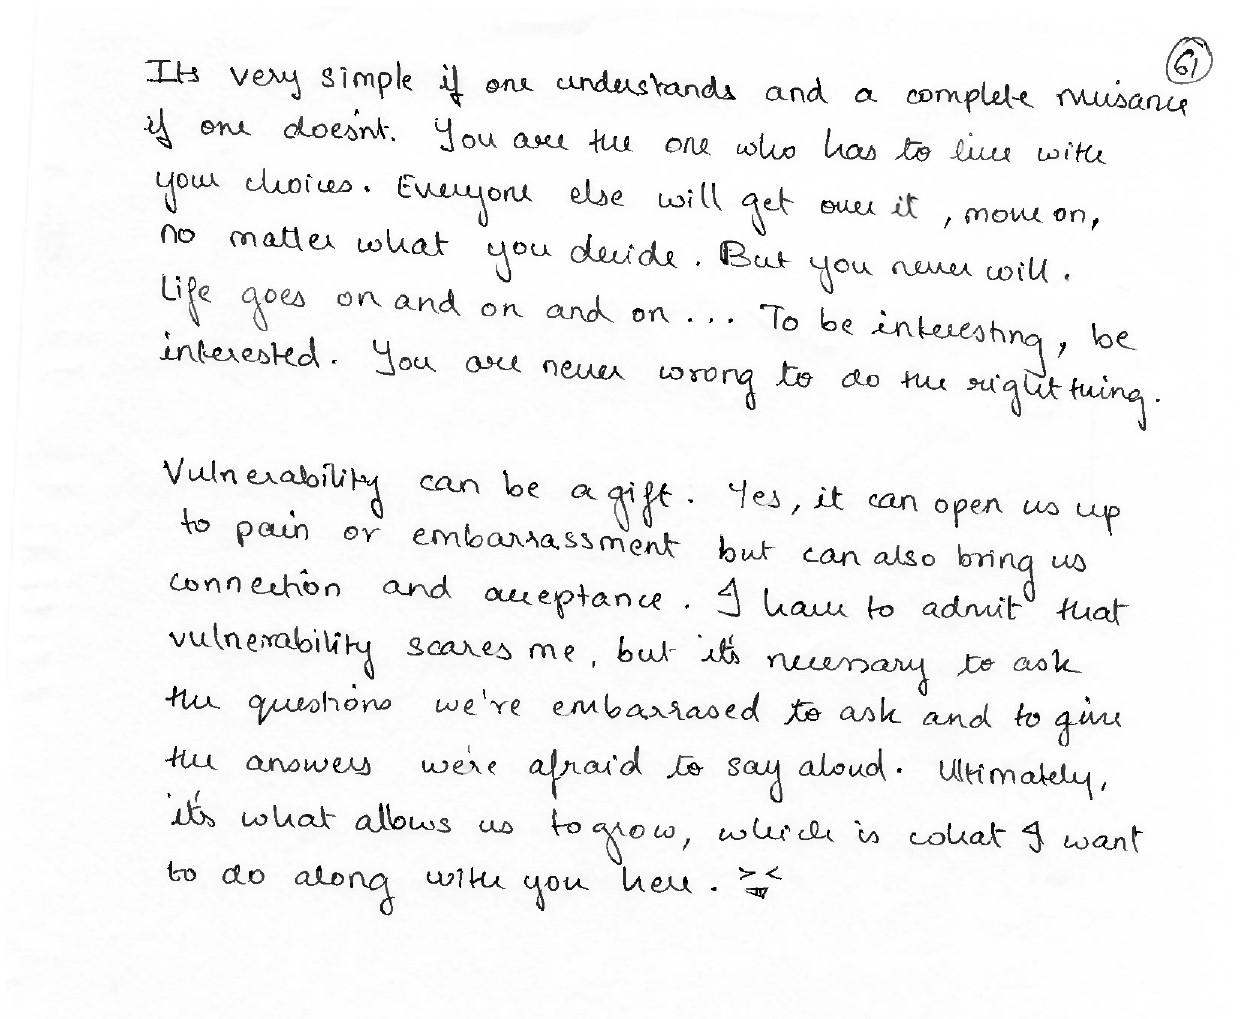 61
Its very simple if one understands and a complete nuisance
if one does'nt. You are the one who has to live with
your choices. Everyone else will get over it, move on,
no matter what you decide. But you never will.
Life goes on and on and on... To be interesting, be
interested. You are never wrong to do the right thing.
Vulnerability can be a gift. Yes, it can open us up
to pain or embarrassment but can also bring us
connection and acceptance. I have to admit that
vulnerability scares me, but it's necessary to ask
the questions we're embarrased to ask and to give
the answers we're afraid to say aloud. Ultimately,
it's what allows us to grow, which is what I want
to do along with you here.